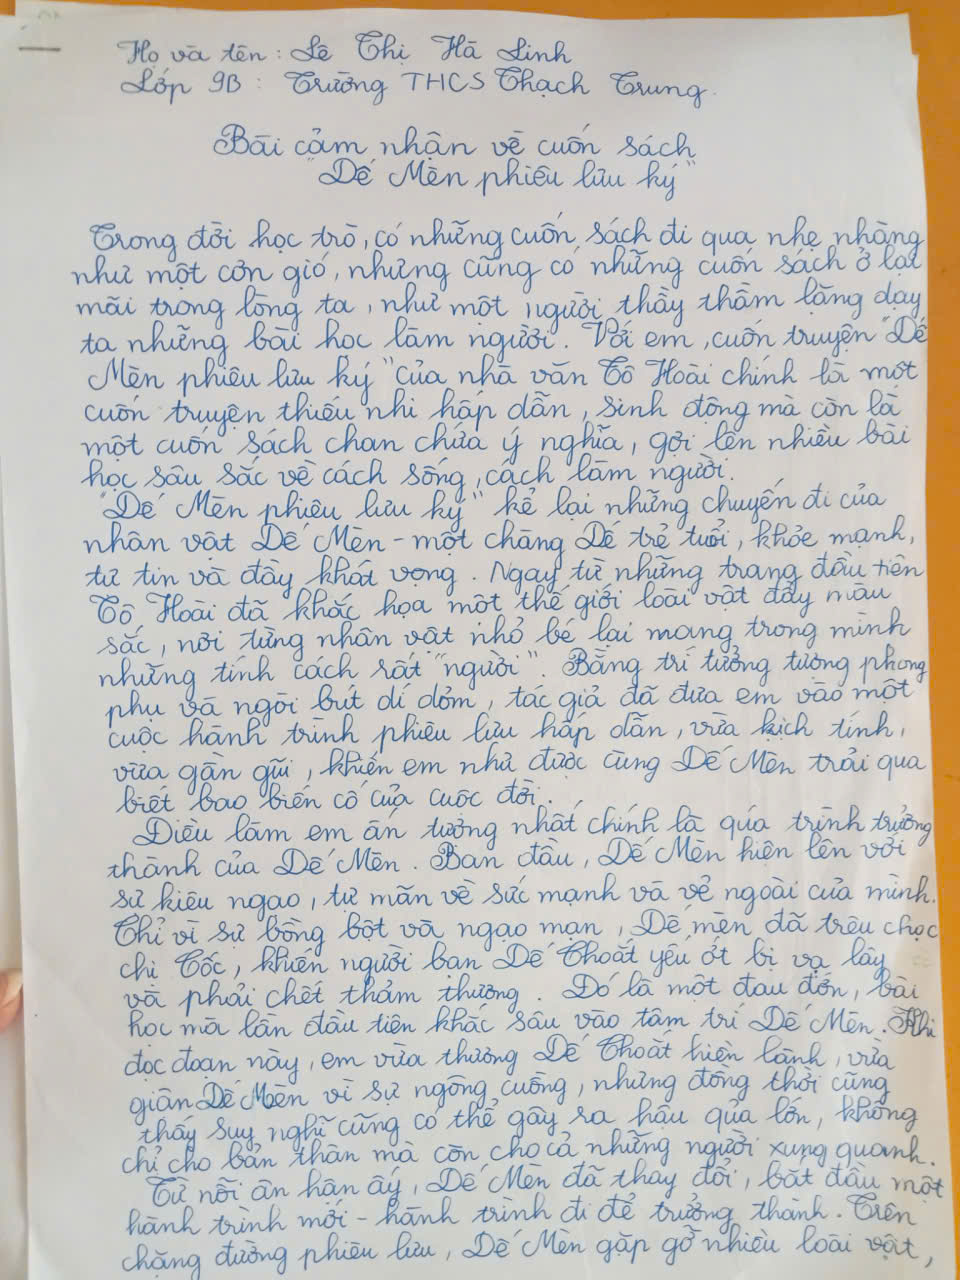 Họ và tên : Lê Thị Hà Linh
Lớp 9B : Trường THCS Thạch Trung.
Bài cảm nhận về cuốn sách
"Dế Mèn phiêu lưu ký"
Trong đời học trò, có những cuốn sách đi qua nhẹ nhàng
như một cơn gió, nhưng cũng có những cuốn sách ở lại
mãi trong lòng ta, như một người thầy thầm lặng dạy
ta những bài học làm người. Với em, cuốn truyện "Dế
Mèn phiêu lưu ký" của nhà văn Tô Hoài chính là một
cuốn truyện thiếu nhi hấp dẫn, sinh động mà còn là
một cuốn sách chan chứa ý nghĩa, gợi lên nhiều bài
học sâu sắc về cách sống, cách làm người.
"Dế Mèn phiêu lưu ký" kể lại những chuyến đi của
nhân vật Dế Mèn - một chàng Dế trẻ tuổi, khỏe mạnh,
tự tin và đầy khát vọng. Ngay từ những trang đầu tiên
Tô Hoài đã khắc họa một thế giới loài vật đầy màu
sắc, nơi từng nhân vật nhỏ bé lại mang trong mình
những tính cách rất "người". Bằng trí tưởng tượng phong
phụ và ngòi bút dí dỏm, tác giả đã đưa em vào một
cuộc hành trình phiêu lưu hấp dẫn, vừa kịch tính,
vừa gần gũi, khiến em như được cùng Dế Mèn trải qua
biết bao biến cố của cuộc đời.
Điều làm em ấn tượng nhất chính là qúa trình trưởng
thành của Dế Mèn. Ban đầu, Dế Mèn hiện lên với
sự kiêu ngạo, tự mãn về sức mạnh và vẻ ngoài của mình.
Chỉ vì sự bồng bột và ngạo mạn, Dế mèn đã trêu chọc
chị Cốc, khiến người bạn Dế Choắt yếu ớt bị vạ lây
và phải chết thảm thương. Đó là một đau đớn, bài
học mà lần đầu tiên khắc sâu vào tâm trí Dế Mèn. Khi
đọc đoạn này, em vừa thương Dế Choắt hiền lành, vừa
giận Dế Mèn vì sự ngông cuồng, nhưng đồng thời cũng
thấy suy nghĩ cũng có thể gây ra hậu qủa lớn, không
chỉ cho bản thân mà còn cho cả những người xung quanh.
Từ nỗi ân hận ấy, Dế Mèn đã thay đổi, bắt đầu một
hành trình mới - hành trình đi để trưởng thành. Trên
chặng đường phiêu lưu, Dế Mèn gặp gỡ nhiều loài vật,